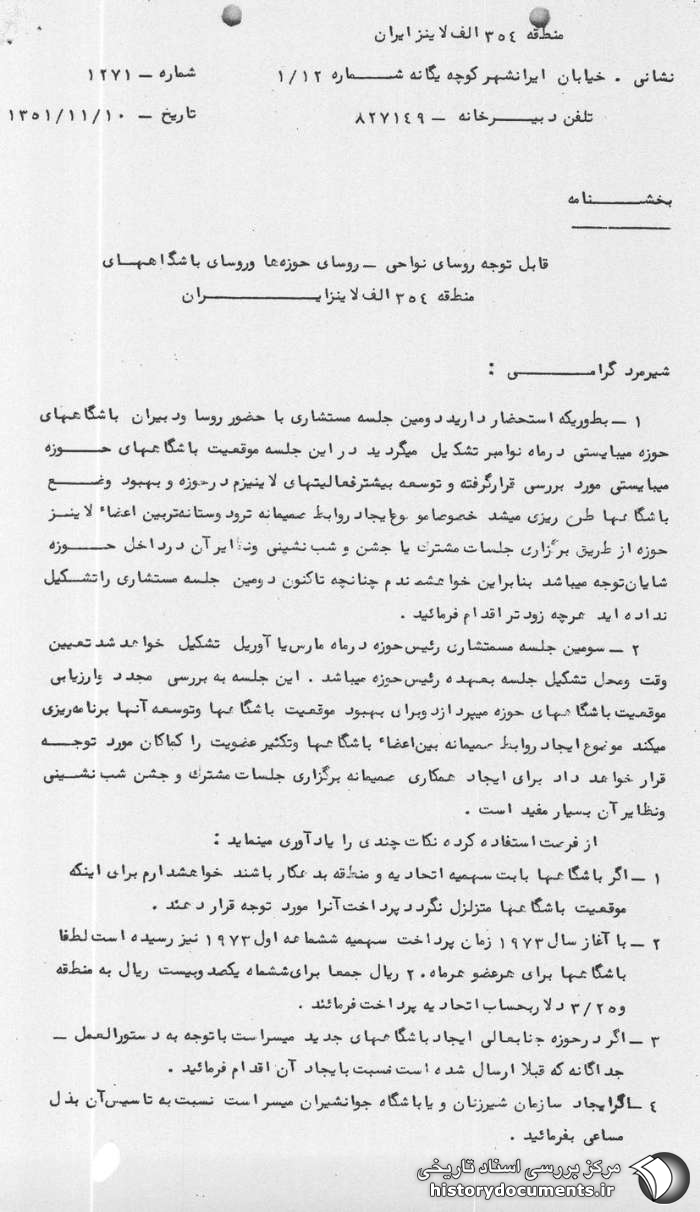 منطقه ۳۵۴ الف لاینز ایران
نشانی . خیابان ایرانشهر کوچه یگانه شماره ۱/۱۲
شماره – ۱۲۷۱
تلفن دبیرخانه – ۸۲۷۱۴۹
تاریخ – ۱۳۵۱/۱۱/۱۰
بخشنامه
قابل توجه روسای نواحی – روسای حوزه‌ها وروسای باشگاههای
منطقه ۳۵۴ الف لاینزایران
شیرمرد گرامی :
۱ – بطوریکه استحضار دارید دومین جلسه مستشاری با حضور روسا ودبیران باشگاههای
حوزه میبایستی درماه نوامبر تشکیل میگردید در این جلسه موقعیت باشگاههای حوزه
میبایستی مورد بررسی قرارگرفته و توسعه بیشترفعالیتهای لاینیزم درحوزه و بهبود وضع
باشگاهها طرح ریزی میشد خصوصا موضوع ایجاد روابط صمیمانه ترودوستانه‌تربین اعضاء لاینز
حوزه از طریق برگزاری جلسات مشترک یا جشن و شب نشینی ونظایر آن درداخل حوزه
شایان توجه میباشد بنابراین خواهشمندم چنانچه تاکنون دومین جلسه مستشاری راتشکیل
نداده اید هرچه زودتر اقدام فرمائید .
۲ – سومین جلسه مسمتشاری رئیس حوزه درماه مارس یا آوریل تشکیل خواهد شد تعیین
وقت ومحل تشکیل جلسه بعهده رئیس حوزه میباشد . این جلسه به بررسی مجدد وارزیابی
موقعیت باشگاههای حوزه میپردازد وبرای بهبود موقعیت باشگاهها وتوسعه آنها برنامه‌ریزی
میکند موضوع ایجاد روابط صمیمانه بین اعضاء باشگاهها وتکثیر عضویت را کماکان مورد توجه
قرار خواهد داد برای ایجاد همکاری صمیمانه برگزاری جلسات مشترک و جشن شب نشینی
ونظایر آن بسیار مفید است .
از فرصت استفاده کرده نکات چندی را یادآوری مینماید :
۱ – اگر باشگاهها بابت سهمیه اتحادیه و منطقه بدهکار باشند خواهشدارم برای اینکه
موقعیت باشگاهها متزلزل نگردد پرداخت آنرا مورد توجه قرار دهند .
۲ – با آغاز سال ۱۹۷۳ زمان پرداخت سهمیه ششماهه اول ۱۹۷۳ نیز رسیده است لطفا
باشگاهها برای هرعضو هرماه ۲۰ ریال جمعا برای ششماه یکصدوبیست ریال به منطقه
و ۳/۲۵ دلار بحساب اتحادیه پرداخت فرمائند .
۳ – اگر درحوزه جنابعالی ایجاد باشگاههای جدید میسراست باتوجه به دستورالعمل –
جداگانه که قبلا ارسال شده است نسبت بایجاد آن اقدام فرمائید .
۴ – اگرایجاد سازمان شیرزنان و یاباشگاه جوانشیران میسر است نسبت به تاسیس آن بذل
مساعی بفرمائید .
مرکز بررسی اسناد تاریخی
historydocuments.ir